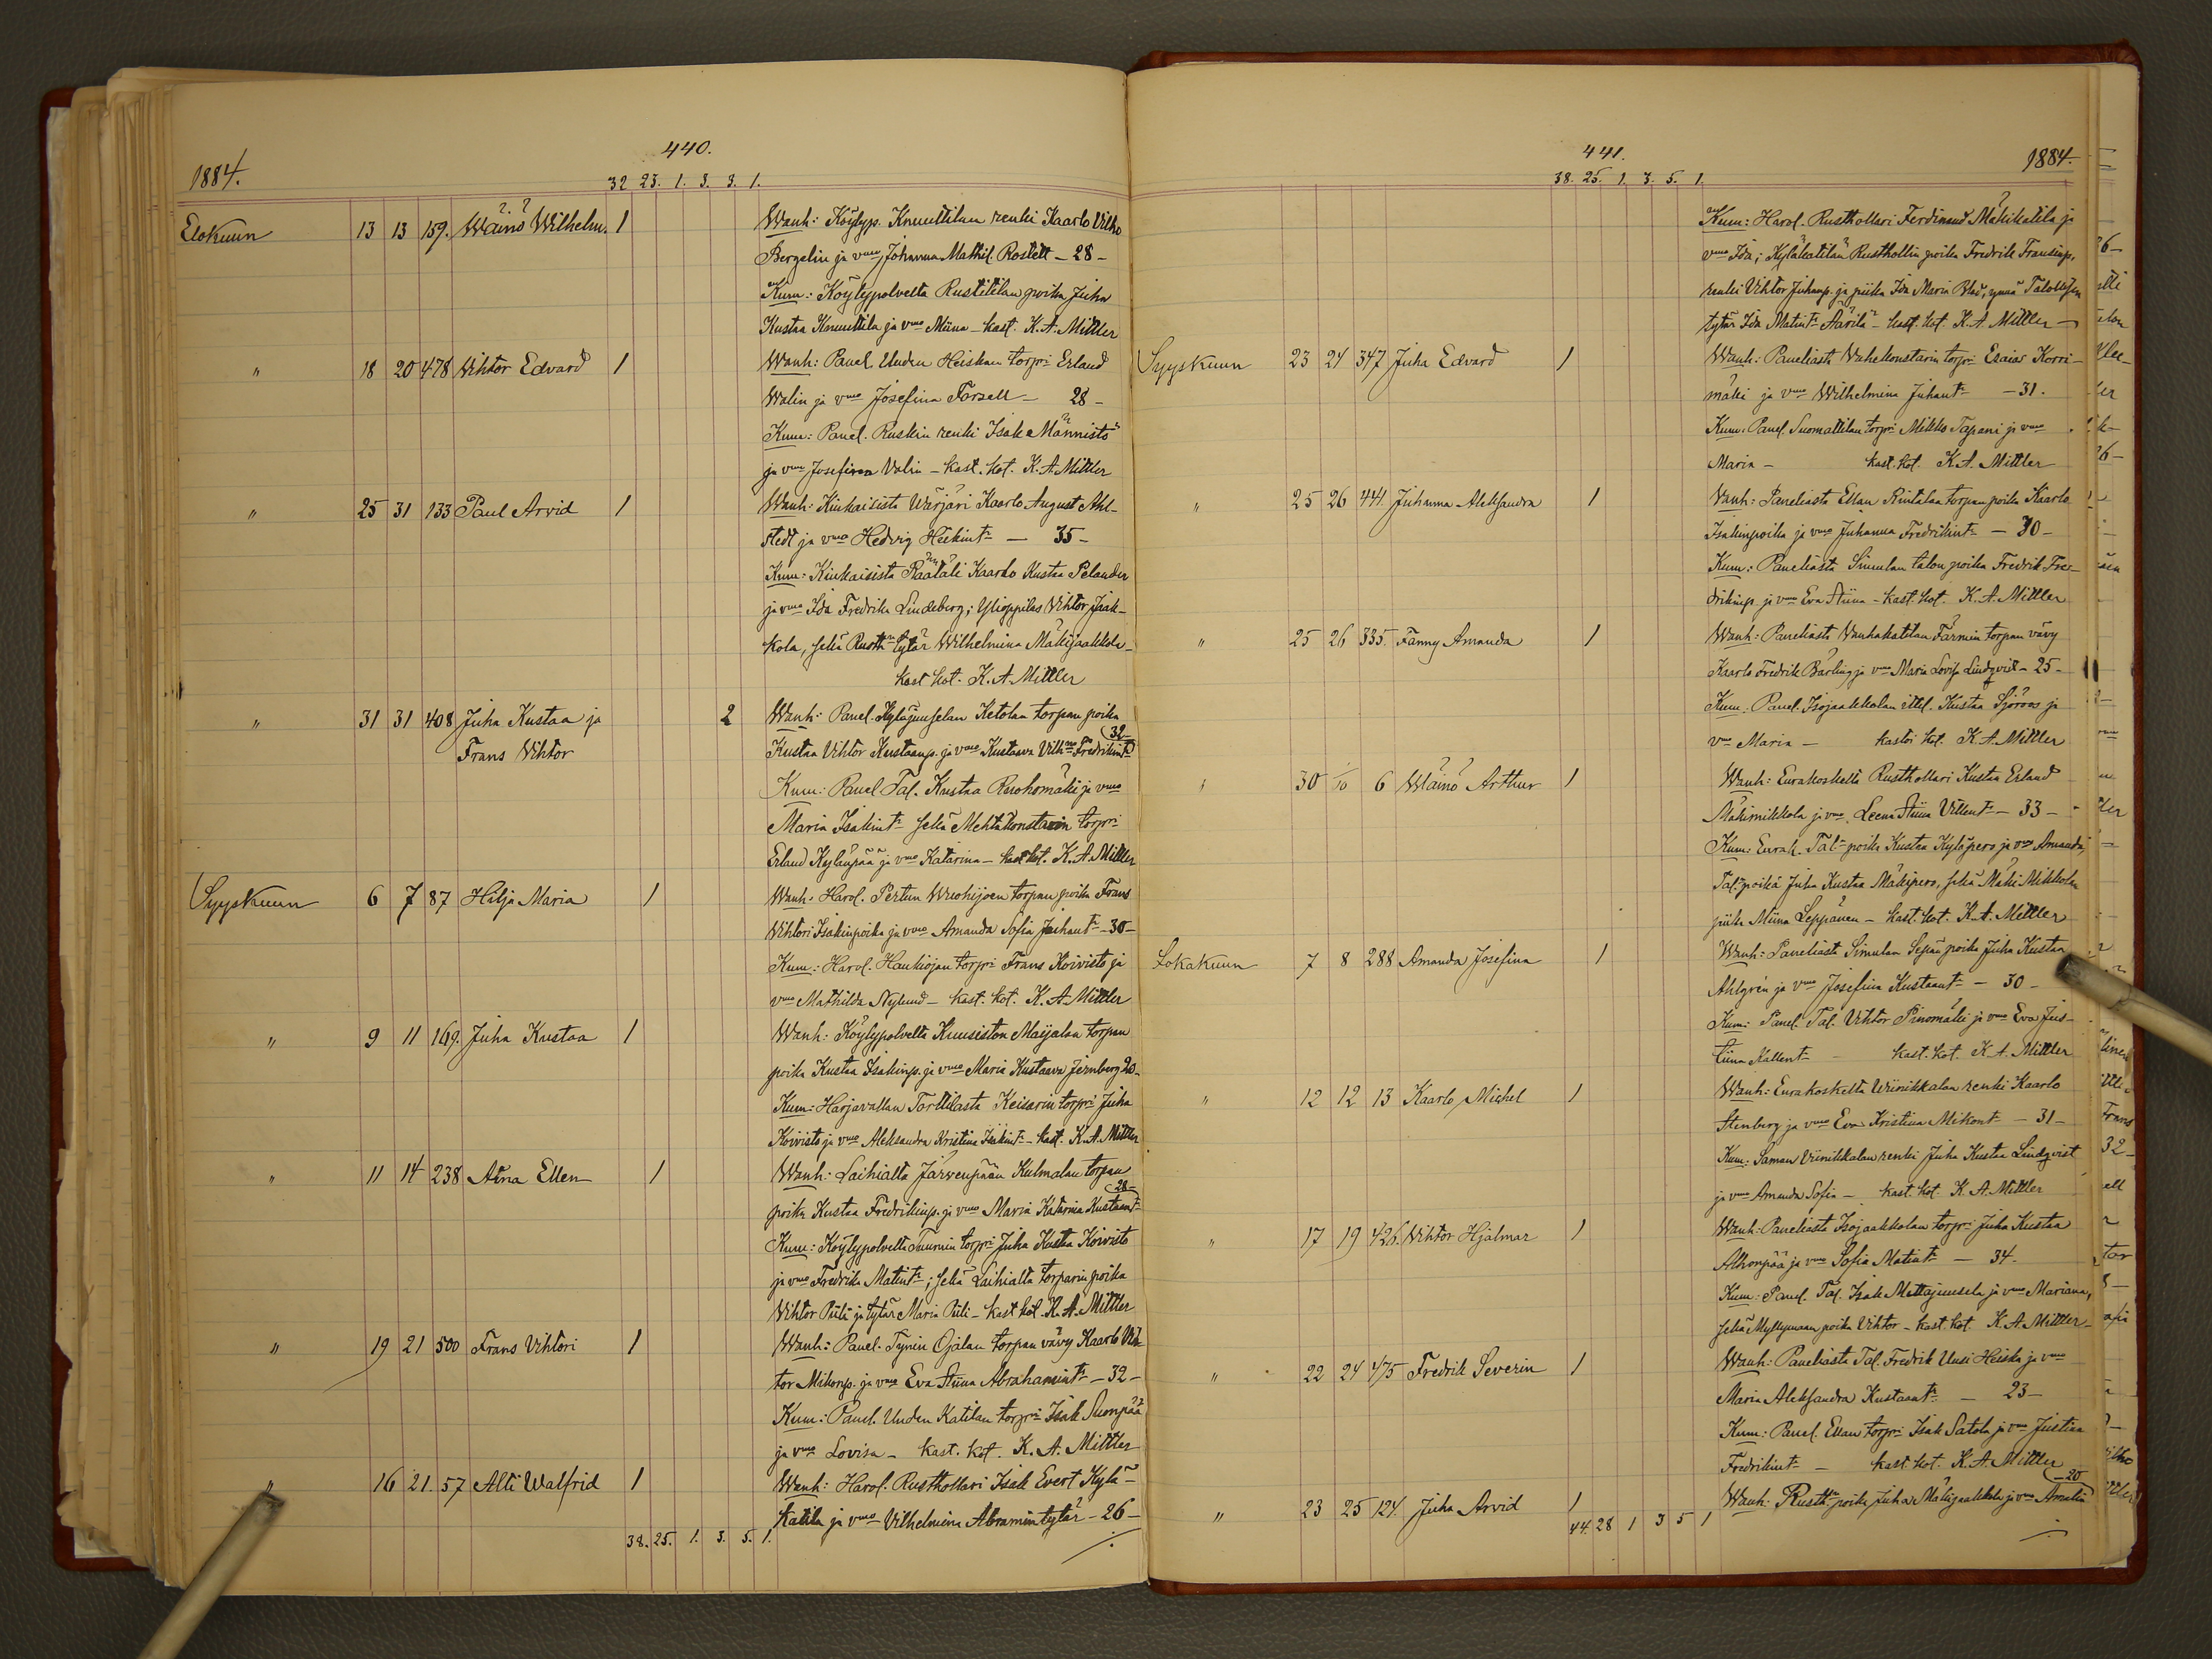 440.
1884.
32 23. 1. 3. 3. 1.
Elokuun 13 13 159. Wäinö Wilhelm. 1 Wanh: Köylyp. Knuuttilan renki Kaarlo Vilho
Bergelin ja vmo Johanna Mathil. Rostett - 28 -
Kum: Köylypolvelta Rustitilan poika Juha
Kustaa Knuuttila ja vmo Miina - kast. K. A. Mittler
" 18 20 478 Vihtor Edvard 1 Wanh: Panel. Uuden Heiskan torpri Erland
Walin ja vmo Josefina Forsell - 28 -
Kum: Panel. Ruskin renki Isak Männistö
ja vmo Josefina Valin - kast. kot. K. A. Mittler
" 25 31 133 Paul Arvid 1 Wanh: Kiukaisista Wärjäri Kaarlo August Ahl-
stedt ja vmo Hedvig Heikint: - 35 -
Kum: Kiukaisista Räätäli Kaarlo Kustaa Pelander
ja vmo Ida Fredrika Lindeberg; Ylioppilas Vihtor Jaak-
kola, sekä Rusth:n tytär Wilhelmina Mäkijaakkola -
kast. kot. K. A. Mittler
" 31 31 408 Juha Kustaa ja 2 Wanh: Panel. Kyläjuuselan Ketolan torpan poika
Frans Vihtor Kustaa Vihtor Kustaanp. ja vmo Kustaava Vilh:na Fredrikint: 32 -
Kum: Panel. Tal. Kustaa Ruohomäki ja vmo
Maria Isakint: sekä Mehtäkonstarin torpri
Erland Kylänpää ja vmo Katarina - kast. kot. K. A. Mittler
Syyskuun 6 7 87 Hilja Maria 1 Wanh: Harol. Pertun Wuohijoen torpan poika Frans
Vihtori Isakinpoika ja vmo Amanda Sofia Juhant: - 30 -
Kum: Harol. Haukiojan torpri Frans Koivisto ja
vmo Mathilda Nylund - kast. kot. K. A. Mittler
" 9 11 169. Juha Kustaa 1 Wanh: Köylypolvelta Kuusiston Maijalan torpan
poika Kustaa Isakinp. ja vmo Maria Kustaava Jernberg 20 -
Kum: Harjavallan Torttilasta Keisarin torpri Juha
Koivisto ja vmo Aleksandra Kristina Isakint: - kast. K. A. Mittler
" 11 14 238 Aina Ellen 1 Wanh: Laihialta Järvenpään Kulmalan torpan
poika Kustaa Fredrikinp. ja vmo Maria Katarina Kustaant: 28 -
Kum: Köylypolvelta Tuurnin torpri Juha Kustaa Koivisto
ja vmo Fredrika Matint:; sekä Laihialta torparin poika
Vihtor Piili ja tytär Maria Piili - kast. kot. K. A. Mittler
" 19 21 500 Frans Vihtori 1 Wanh: Panel. Tynin Ojalan torpan vävy Kaarlo Vih-
tor Mikonp. ja vmo Eva Stiina Abrahamint: - 32 -
Kum: Panel. Uuden Katilan torpri Isak Suonpää
ja vmo Lovisa - kast. kot. K. A. Mittler
" 16 21. 57 Alti Walfrid 1 Wanh: Harol. Rusthollari Isak Evert Kylä-
katila ja vmo Vilhelmina Abramintytär - 26 -
38. 25. 1. 3. 5. 1.
441.
1884.
38. 25. 1. 3. 5. 1.
Kum: Harol. Rusthollari Ferdinand Mäkikatila ja
vmo Ida; Kyläkatilan Rusthollin poika Fredrik Fransinp.
renki Vihtor Juhanp. ja piika Ida Maria Blad, ynnä Talollisen
tytär Ida Matint: Äärilä - kast. kot. K. A. Mittler
Syyskuun 23 24 347 Juha Edvard 1 Wanh: Paneliasta Vahekonstarin torpri Esaias Korri-
mäki ja vmo Wilhelmina Juhant: - 31.
Kum: Panel. Suomattilan torpri Mikko Tapani ja vmo
Maria - kast. kot. K. A. Mittler
" 25 26 441. Juhanna Aleksandra 1 Wanh: Paneliasta Ellan Rintalan torpan poika Kaarlo
Isakinpoika ja vmo Juhanna Fredrikint: - 30 -
Kum: Paneliasta Simulan talon poika Fredrik Fre-
drikinp. ja vmo Eva Stiina - kast. kot. K. A. Mittler
" 25 26 335. Fanny Amanda 1 Wanh: Paneliasta Vanhakatilan Färmin torpan vävy
Kaarlo Fredrik Bärling ja vmo Maria Lovisa Lindqvist - 25 -
Kum: Panel. Isojaakkolan ittel. Kustaa Sjöroos ja
vmo Maria - kastoi kot. K. A. Mittler
" 30 1/10 6 Wäinö Arthur 1 Wanh: Eurakoskelta Rusthollari Kustaa Erland
Mäkimikkola ja vmo Leena Stiina Villent: - 33 -
Kum: Eurak. Tal: poika Kustaa Kyläpero ja vmo Amanda;
Tal: poika Juha Kustaa Mäkipero, sekä Mäki Mikkolan
piika Miina Leppänen - kast. kot. K. A. Mittler
Lokakuun 7 8 288 Amanda Josefina 1 Wanh: Paneliasta Simulan Sepän poika Juha Kustaa
Ahlgrén ja vmo Josefiina Kustaant: - 30 -
Kum: Panel. Tal. Vihtor Pinomäki ja vmo Eva Jus-
tiina Kallent: - kast. kot. K. A. Mittler
" 12 12 13 Kaarlo Michel 1 Wanh: Eurakoskelta Wiinikkalan renki Kaarlo
Stenberg ja vmo Eva Kristiina Mikont: - 31 -
Kum: Saman Viinikkalan renki Juha Kustaa Lindqvist
ja vmo Amanda Sofia - kast. kot. K. A. Mittler
" 17 19 426. Vihtor Hjalmar 1 Wanh: Paneliasta Isojaakkolan torpri Juha Kustaa
Alhonpää ja vmo Sofia Matint: - 34.
Kum: Panel. Tal. Isak Mettäjuusela ja vmo Mariana,
sekä Myllymaan poika Vihtor - kast. kot. K. A. Mittler -
" 22 24 475 Fredrik Severin 1 Wanh: Paneliasta Tal. Fredrik Uusi Heiska ja vmo
Maria Aleksandra Kustaant: - 23 -
Kum: Panel. Ellan torpri Isak Satola ja vmo Justiina
Fredrikint: - kast. kot. K. A. Mittler
" 23 25 124. Juha Arvid 1 Wanh: Rusth:n poika Juha Mäkijaakkola ja vmo Amalia - 20
44. 28 1 3 5 1